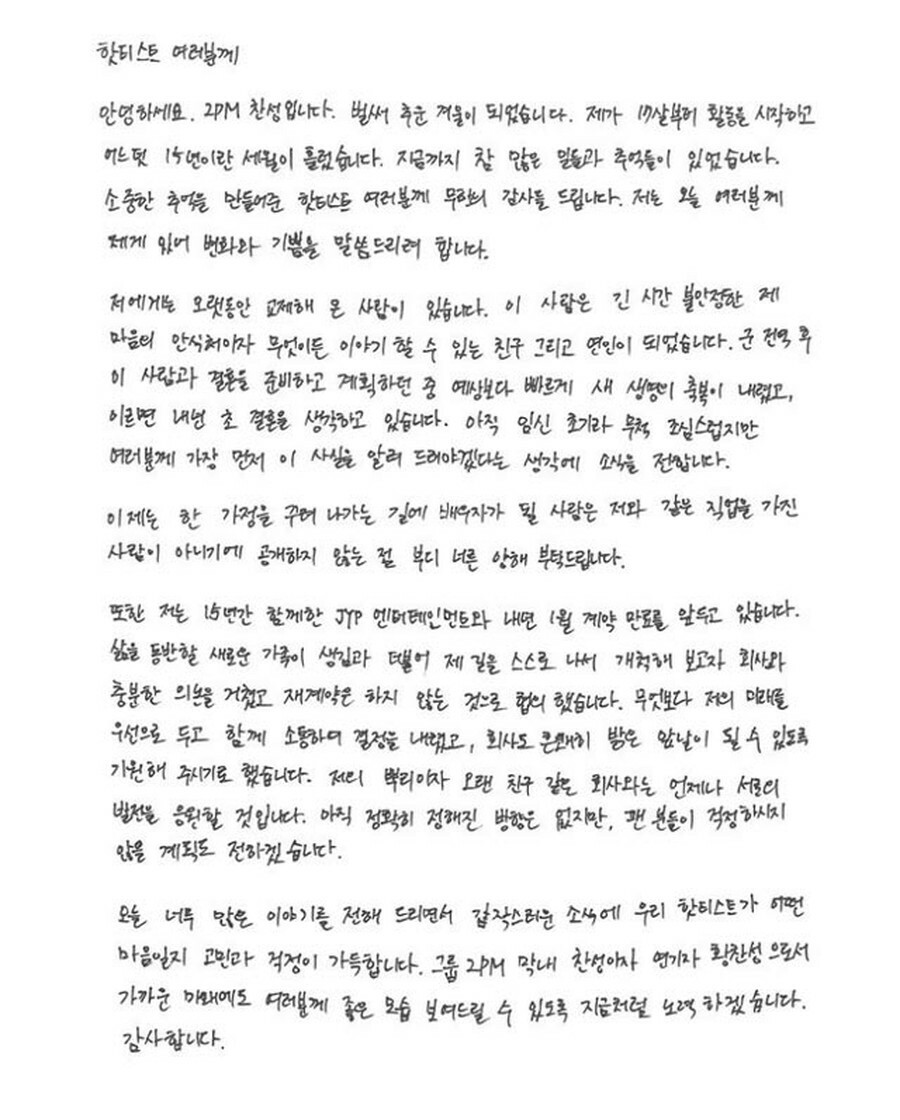 핫티스트 여러분께
안녕하세요. 2PM 찬성입니다. 벌써 추운 겨울이 되었습니다. 제가 17살부터 활동을 시작하고
어느덧 15년이란 세월이 흘렀습니다. 지금까지 참 많은 일들과 추억들이 있었습니다.
소중한 추억을 만들어준 핫티스트 여러분께 무한의 감사를 드립니다. 저는 오늘 여러분께
제게 있어 변화와 기쁨을 말씀드리려 합니다.
저에게는 오랫동안 교제해 온 사람이 있습니다. 이 사람은 긴 시간 불안정한 제
마음의 안식처이자 무엇이든 이야기 할 수 있는 친구 그리고 연인이 되었습니다. 군 전역 후
이 사람과 결혼을 준비하고 계획하던 중 예상보다 빠르게 새 생명의 축복이 내렸고,
이르면 내년 초 결혼을 생각하고 있습니다. 아직 임신 초기라 무척 조심스럽지만
여러분께 가장 먼저 이 사실을 알려 드려야겠다는 생각에 소식을 전합니다.
이제는 한 가정을 꾸려 나가는 길에 배우자가 될 사람은 저와 같은 직업을 가진
사람이 아니기에 공개하지 않는 점 부디 너른 양해 부탁드립니다.
또한 저는 15년간 함께한 JYP 엔터테인먼트와 내년 1월 계약 만료를 앞두고 있습니다.
삶을 동반할 새로운 가족이 생김과 더불어 제 길을 스스로 나서 개척해 보고자 회사와
충분한 의논을 거쳤고 재계약은 하지 않는 것으로 협의 했습니다. 무엇보다 저의 미래를
우선으로 두고 함께 소통하며 결정을 내렸고, 회사도 흔쾌히 밝은 앞날이 될 수 있도록
기원해 주시기로 했습니다. 저의 뿌리이자 오랜 친구 같은 회사와는 언제나 서로의
발전을 응원할 것입니다. 아직 정확히 정해진 방향은 없지만, 팬 분들이 걱정하시지
않을 계획도 전하겠습니다.
오늘 너무 많은 이야기를 전해 드리면서 갑작스러운 소식에 우리 핫티스트가 어떤
마음일지 고민과 걱정이 가득합니다. 그룹 2PM 막내 찬성이자 연기자 황찬성 으로서
가까운 미래에도 여러분께 좋은 모습 보여드릴 수 있도록 지금처럼 노력 하겠습니다.
감사합니다.